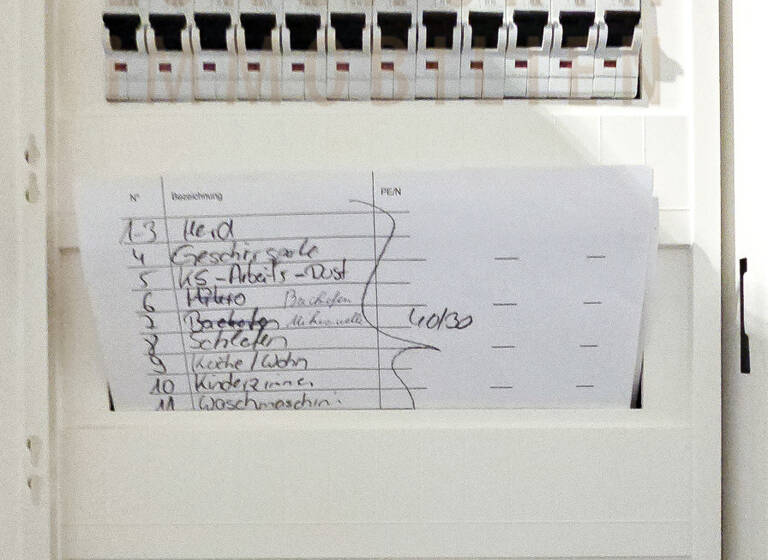 IMMOBILIEN
N° Bezeichnung PE/N
1-3 Herd
4 Geschirrspüle
5 KS-Arbeits-Dust
6 Mikro Backofen
7 Backofen Mikrowelle
40/30
8 Schlafen
9 Küche/Wohn
10 Kinderzimmer
11 Waschmaschin